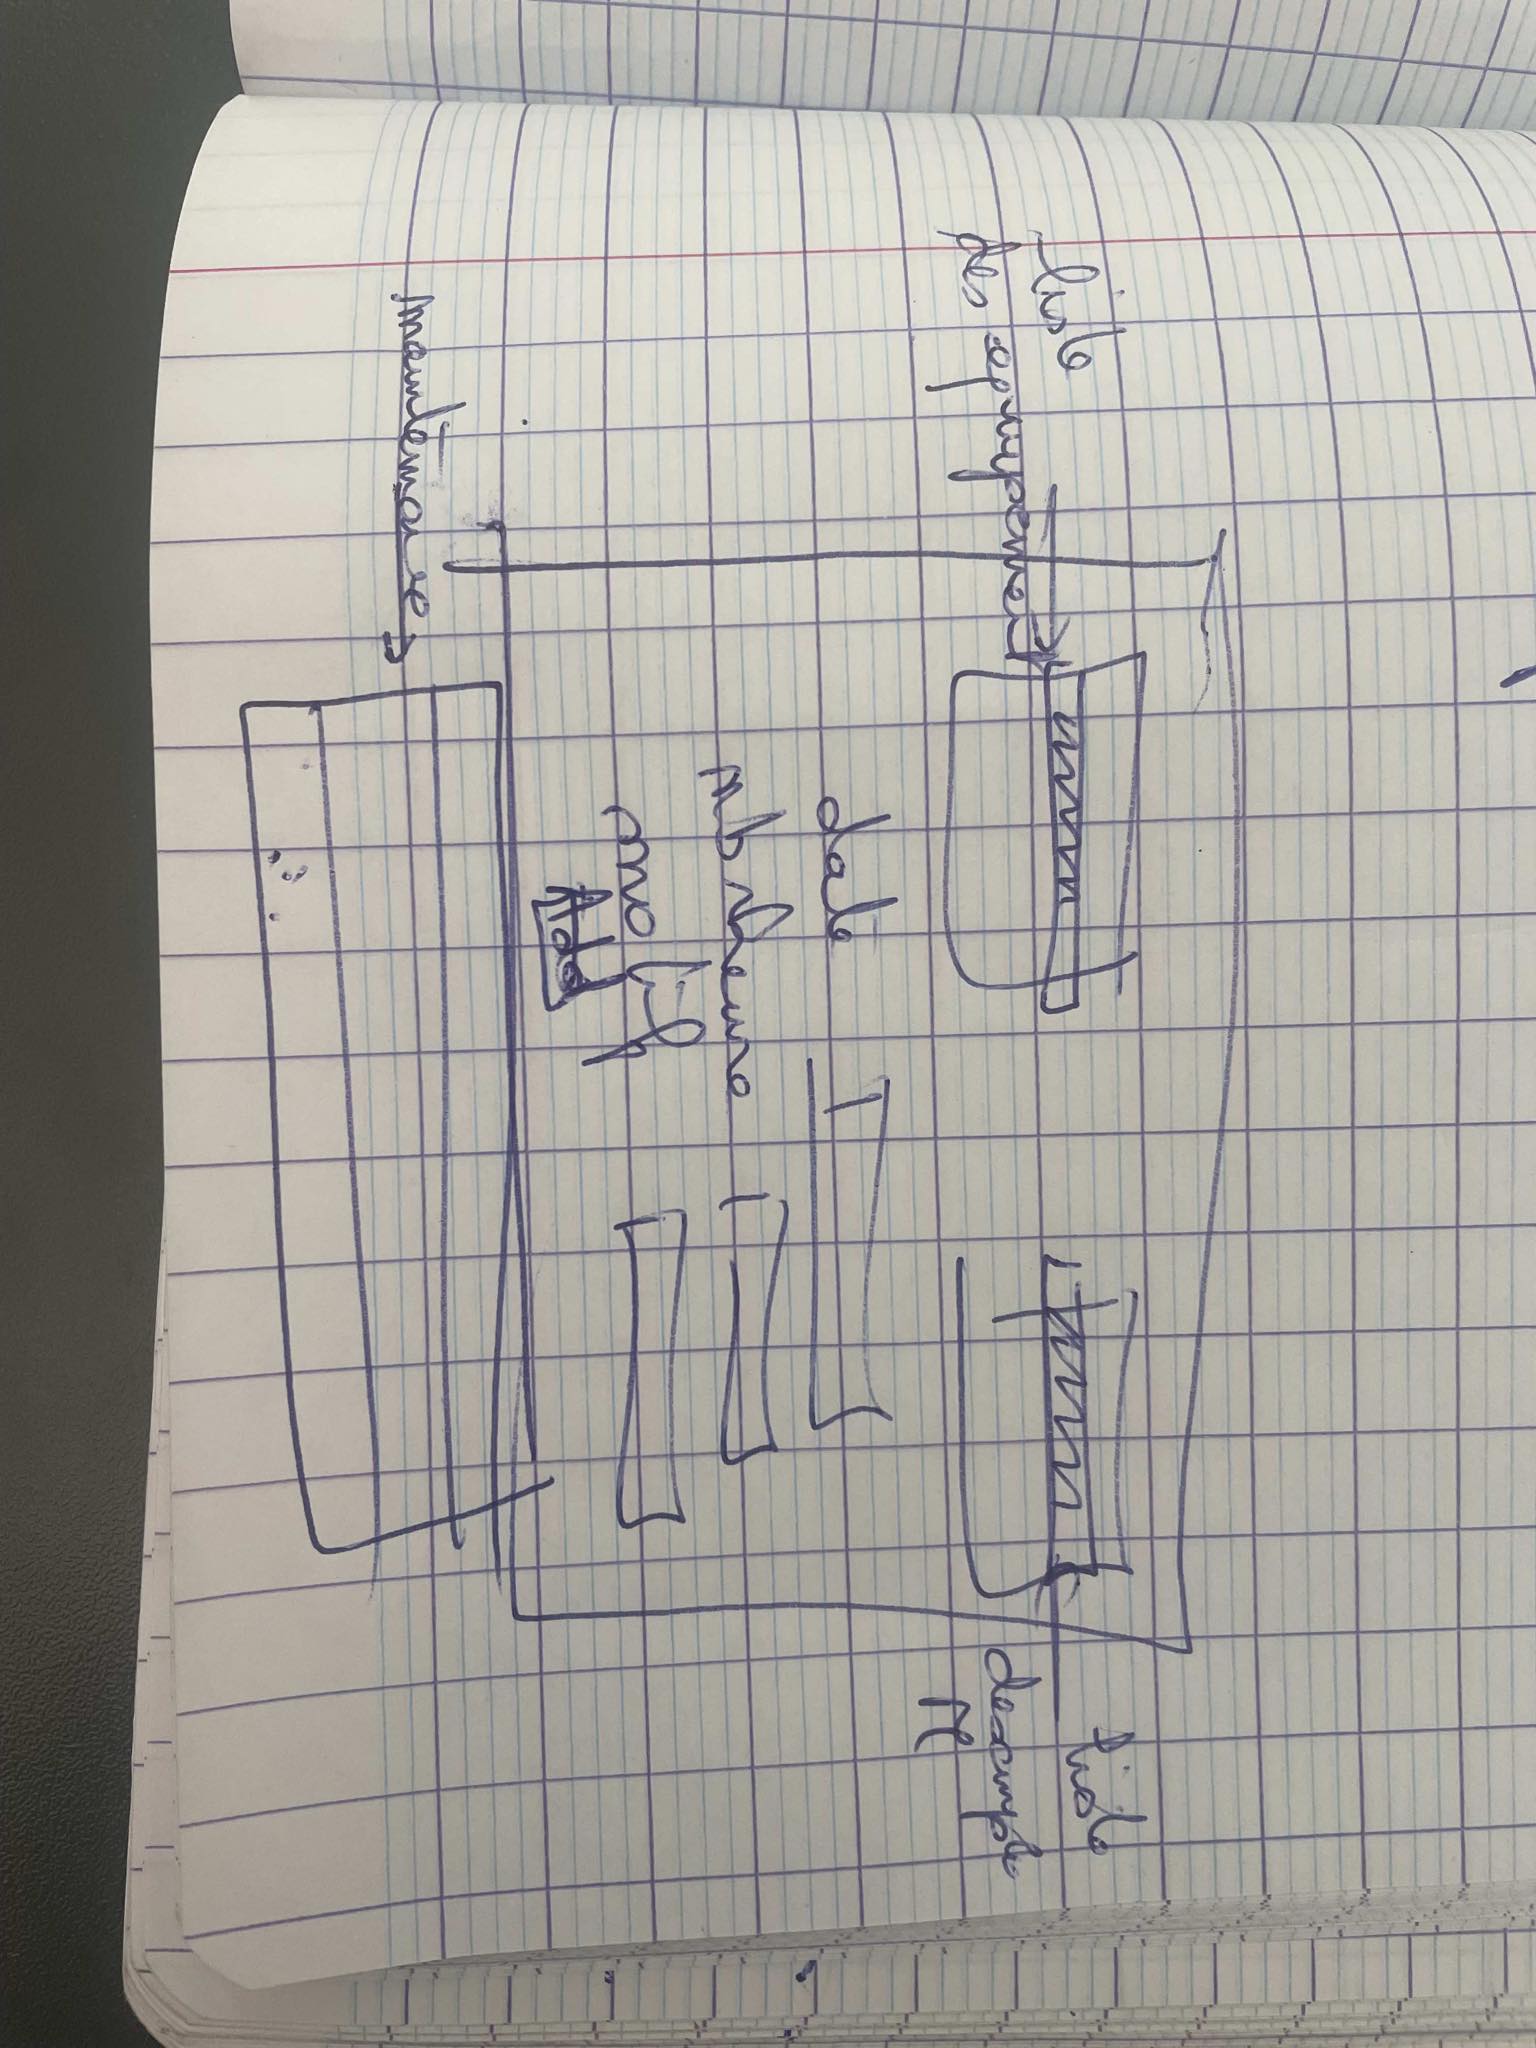 liste
des equipement
liste
des emple
M
date
nb heure
motif
Add
maintenance